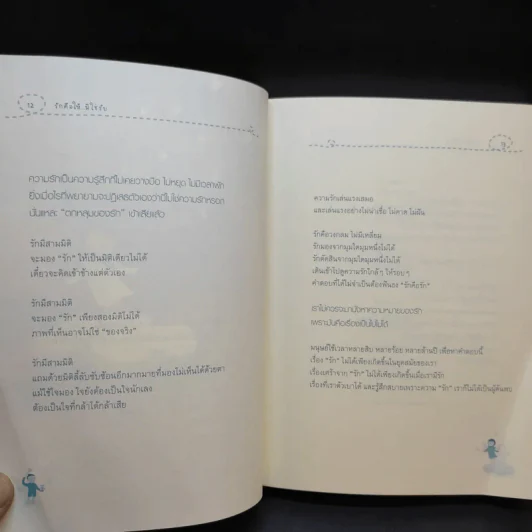 12
รักคือให้ มิใช่รับ
ความรักเป็นความรู้สึกที่ไม่เคยวางมือ ไม่หยุด ไม่มีเวลาพัก
ยิ่งเมื่อไรที่พยายามจะปฏิเสธตัวเองว่านี่ไม่ใช่ความรักหรอก
นั่นแหละ "ตกหลุมของรัก" เข้าเสียแล้ว
รักมีสามมิติ
จะมอง "รัก" ให้เป็นมิติเดียวไม่ได้
เดี๋ยวจะคิดเข้าข้างแต่ตัวเอง
รักมีสามมิติ
จะมอง "รัก" เพียงสองมิติไม่ได้
ภาพที่เห็นอาจไม่ใช่ "ของจริง"
รักมีสามมิติ
แถมด้วยมิติลี้ลับซับซ้อนอีกมากมายที่มองไม่เห็นได้ด้วยตา
แม้ใช้ใจมอง ใจยังต้องเป็นใจนักเลง
ต้องเป็นใจที่กล้าได้กล้าเสีย
ความรักเล่นแรงเสมอ
และเล่นแรงอย่างไม่น่าเชื่อ ไม่คาด ไม่ฝัน
รักคือวงกลม ไม่มีเหลี่ยม
รักมองจากมุมใดมุมหนึ่งไม่ได้
รักตัดสินจากมุมใดมุมหนึ่งไม่ได้
เดินเข้าไปดูความรักใกล้ๆ ให้รอบๆ
คำตอบที่ได้ไม่จำเป็นต้องพ้นลง "รักคือรัก"
เราไม่ควรจะมานั่งหาความหมายของรัก
เพราะมันคือเรื่องเป็นไปไม่ได้
มนุษย์ใช้เวลาหลายสิบ หลายร้อย หลายล้านปี เพื่อหาคำตอบนี้
เรื่อง "รัก" ไม่ได้เพิ่งเกิดขึ้นในยุคสมัยของเรา
เรื่องเศร้าจาก "รัก" ไม่ใช่เพิ่งเกิดขึ้นเมื่อเรามีรัก
เรื่องที่เราตัวเบาได้ และรู้สึกสบายเพราะความ "รัก" เราก็ไม่ได้เป็นผู้ค้นพบ